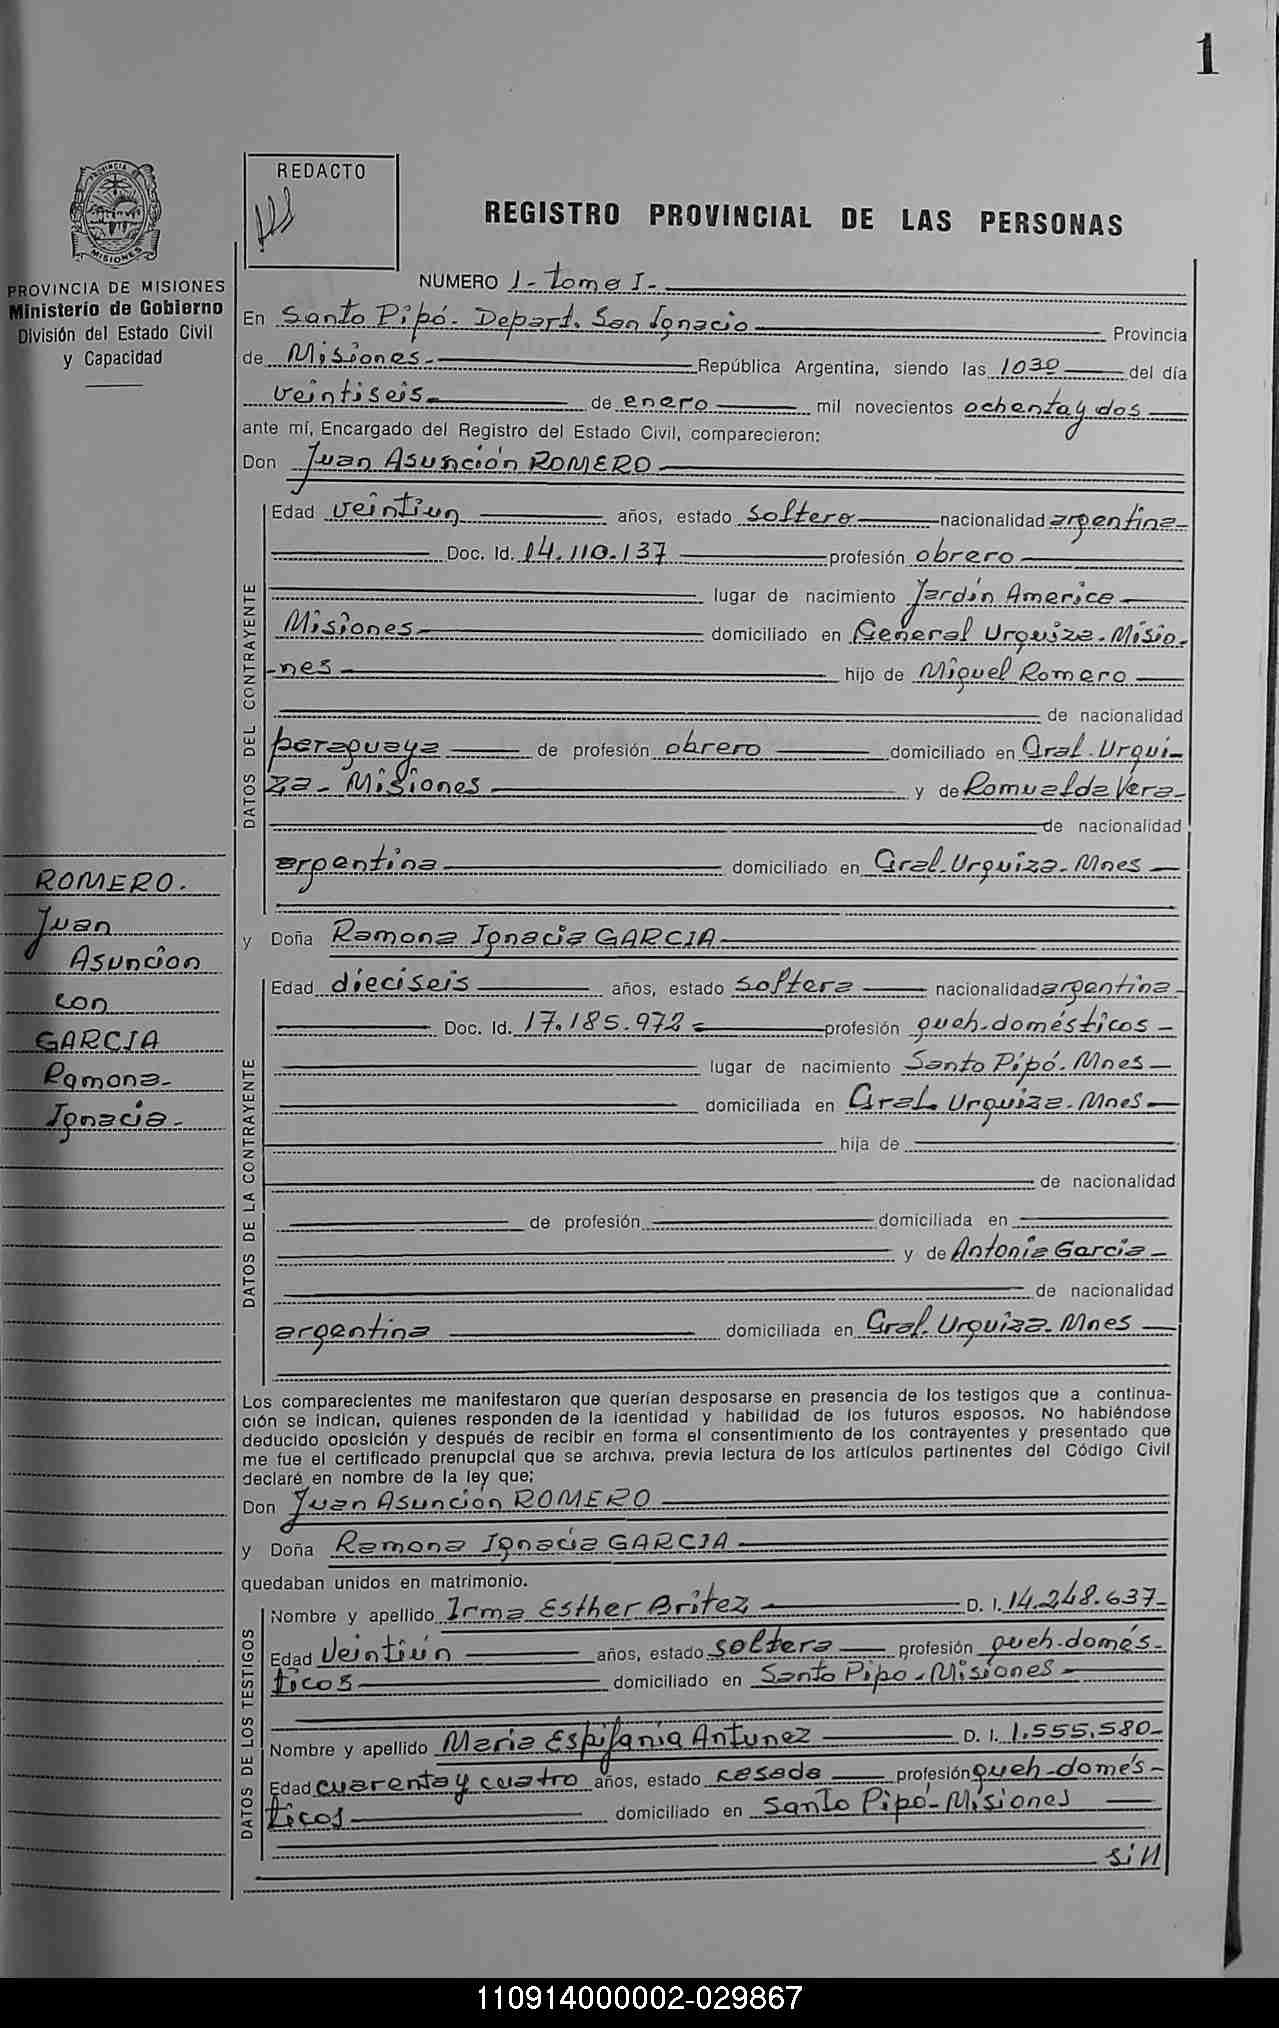 1
REDACTO
REGISTRO PROVINCIAL DE LAS PERSONAS
PROVINCIA DE MISIONES
Ministerio de Gobierno
División del Estado Civil
y Capacidad
NUMERO 1- tomo I-
En Santo Pipó- Depart. San Ignacio Provincia
de Misiones- República Argentina, siendo las 1030 del día
veintiseis- de enero mil novecientos ochenta y dos
ante mí, Encargado del Registro del Estado Civil, comparecieron:
Don Juan Asunción ROMERO
DATOS DEL CONTRAYENTE
Edad veintiun años, estado soltero nacionalidad argentina-
Doc. Id. 14.110.137 profesión obrero
lugar de nacimiento Jardín America
Misiones- domiciliado en General Urquiza-Misio-
-nes hijo de Miguel Romero
de nacionalidad
paraguaya de profesión obrero domiciliado en Gral. Urqui-
za- Misiones y de Romualda Vera-
de nacionalidad
argentina domiciliado en Gral. Urquiza-Mnes
y Doña Ramona Ignacia GARCIA
ROMERO.
Juan
Asuncion
con
GARCIA
Ramona-
Ignacia-
DATOS DE LA CONTRAYENTE
Edad dieciseis años, estado soltera nacionalidad argentina-
Doc. Id. 17.185.972- profesión queh-domésticos-
lugar de nacimiento Santo Pipó-Mnes
domiciliada en Gral. Urquiza-Mnes
hija de
de nacionalidad
de profesión domiciliada en
y de Antonia Garcia-
de nacionalidad
argentina domiciliada en Gral. Urquiza-Mnes
Los comparecientes me manifestaron que querían desposarse en presencia de los testigos que a continua-
ción se indican, quienes responden de la identidad y habilidad de los futuros esposos. No habiéndose
deducido oposición y después de recibir en forma el consentimiento de los contrayentes y presentado que
me fue el certificado prenupcial que se archiva, previa lectura de los artículos pertinentes del Código Civil
declaré en nombre de la ley que;
Don Juan Asuncion ROMERO
y Doña Ramona Ignacia GARCIA
quedaban unidos en matrimonio.
DATOS DE LOS TESTIGOS
Nombre y apellido Irma Esther Britez D. I. 14.248.637-
Edad Veintiún años, estado soltera profesión queh-domés-
ticos domiciliado en Santo Pipo-Misiones
Nombre y apellido Maria Espifania Antunez D. I. 1.555.580-
Edad cuarenta y cuatro años, estado casada profesión queh-domés-
ticos domiciliado en Santo Pipó-Misiones
110914000002-029867